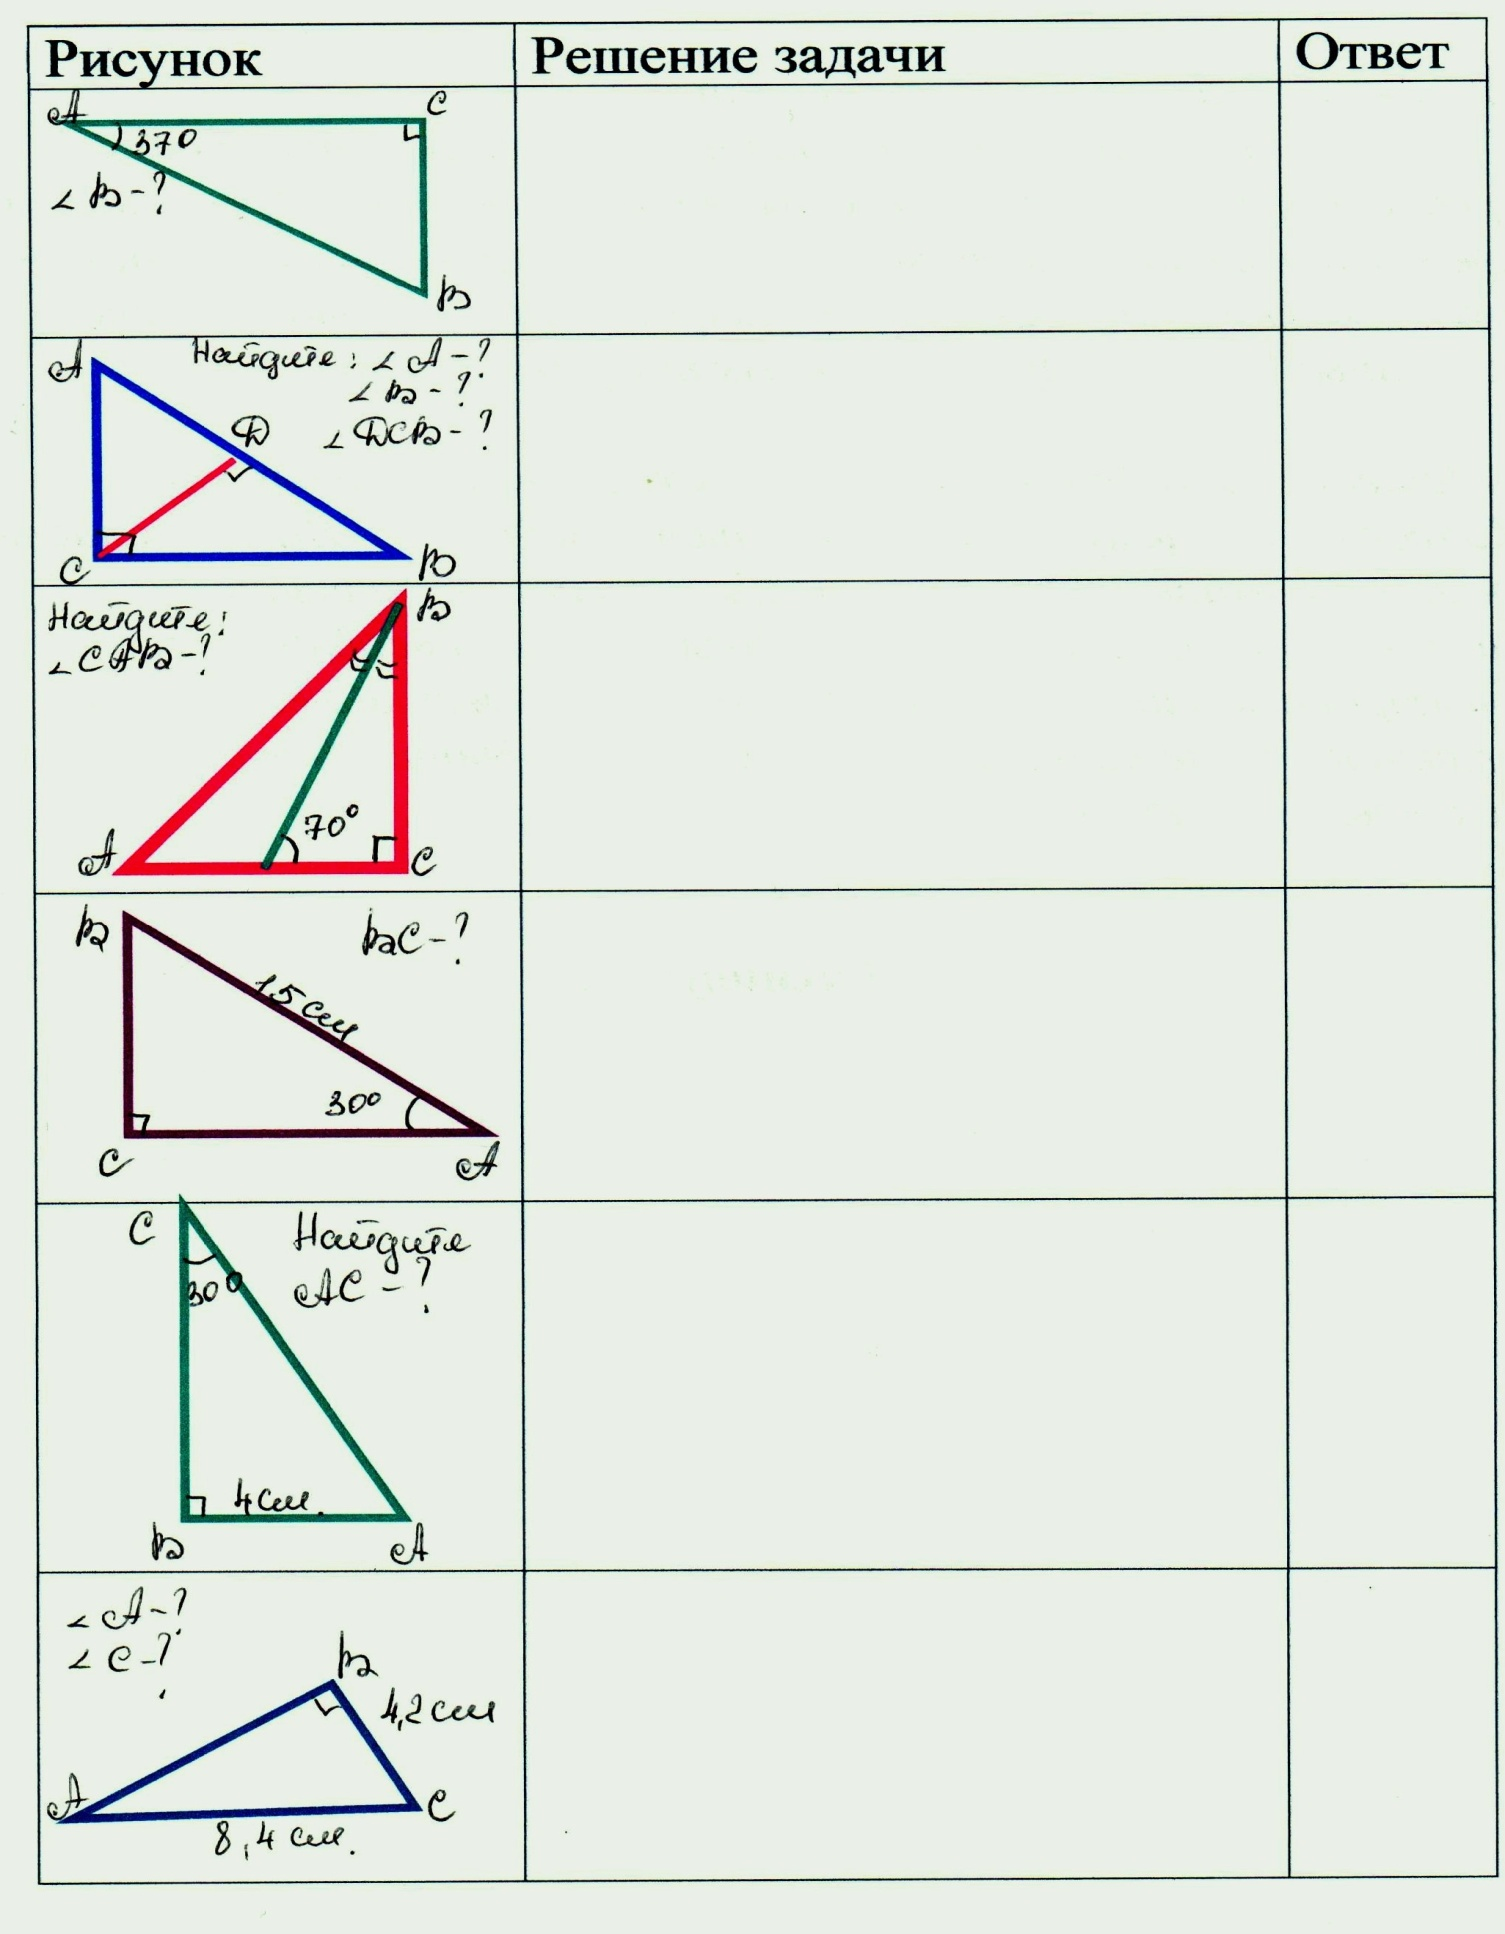 Рисунок
Решение задачи
Ответ
A
C
37°
∠B-?
B
A
Найдите: ∠A-?
∠B-?
D
∠DCB-?
C
B
Найдите:
∠CAB-?
B
70°
A
C
B
BC-?
15 см
30°
C
A
C
Найдите
AC-?
30°
4 см.
B
A
∠A-?
∠C-?
B
4,2 см
A
C
8,4 см.